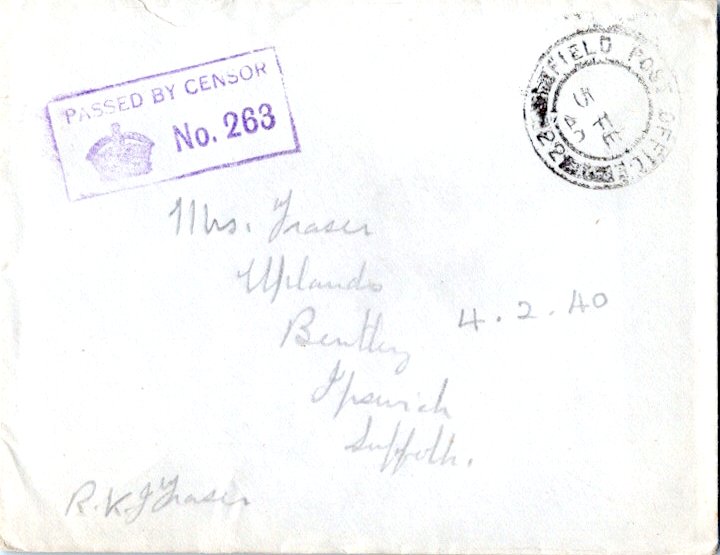 PASSED BY CENSOR
No. 263
FIELD POST OFFICE
5 FE
40
Mrs. Fraser
Uplands
Bentley
4.2.40
Ipswich
Suffolk.
R.K.J Fraser